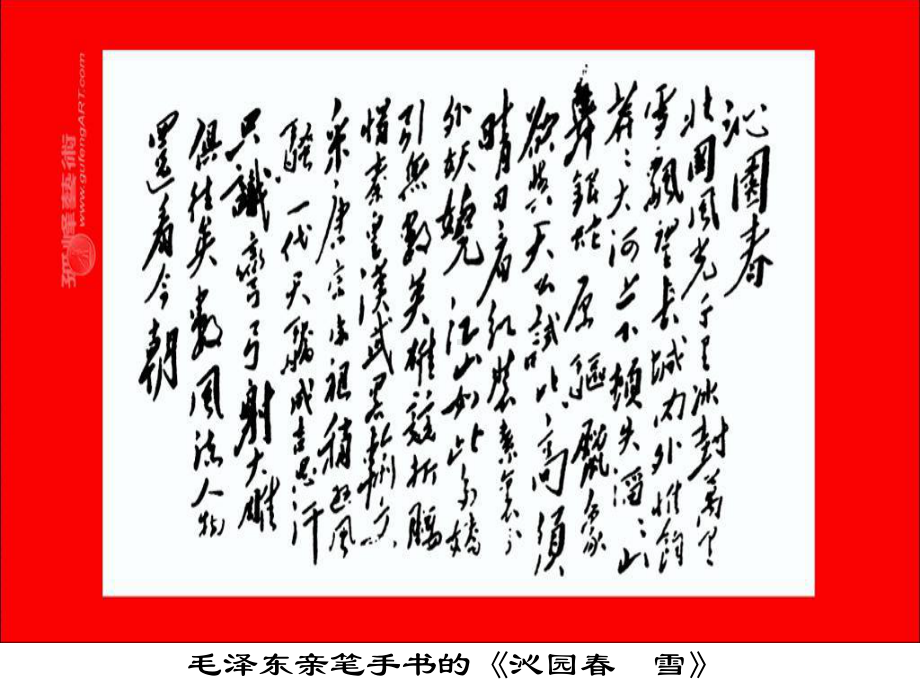 沁園春
北國風光千里冰封萬里
雪飄望長城内外惟餘
莽々大河上下頓失滔々山
舞銀蛇原驅臘象
欲與天公試比高須
晴日看紅裝素裹分
外妖嬈江山如此多嬌
引無數英雄競折腰
惜秦皇漢武略輸文
采唐宗宋祖稍遜風
騷一代天驕成吉思汗
只識彎弓射大雕
俱往矣數風流人物
還看今朝
www.gufengART.com
藝術
毛泽东亲笔手书的《沁园春 雪》